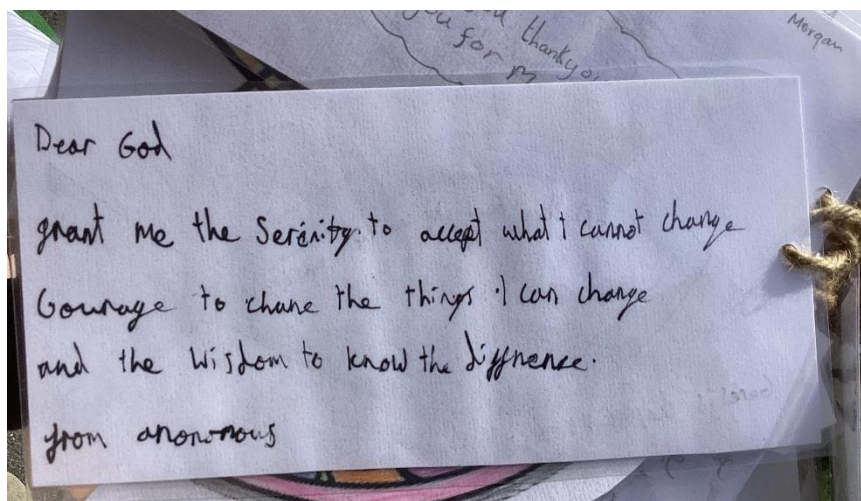 thankyou
you for m
Morgan
Dear God
grant me the Serenity to accept what i cannot change
Courage to chane the things I can change
and the Wisdom to know the diffrense.
from anonomous